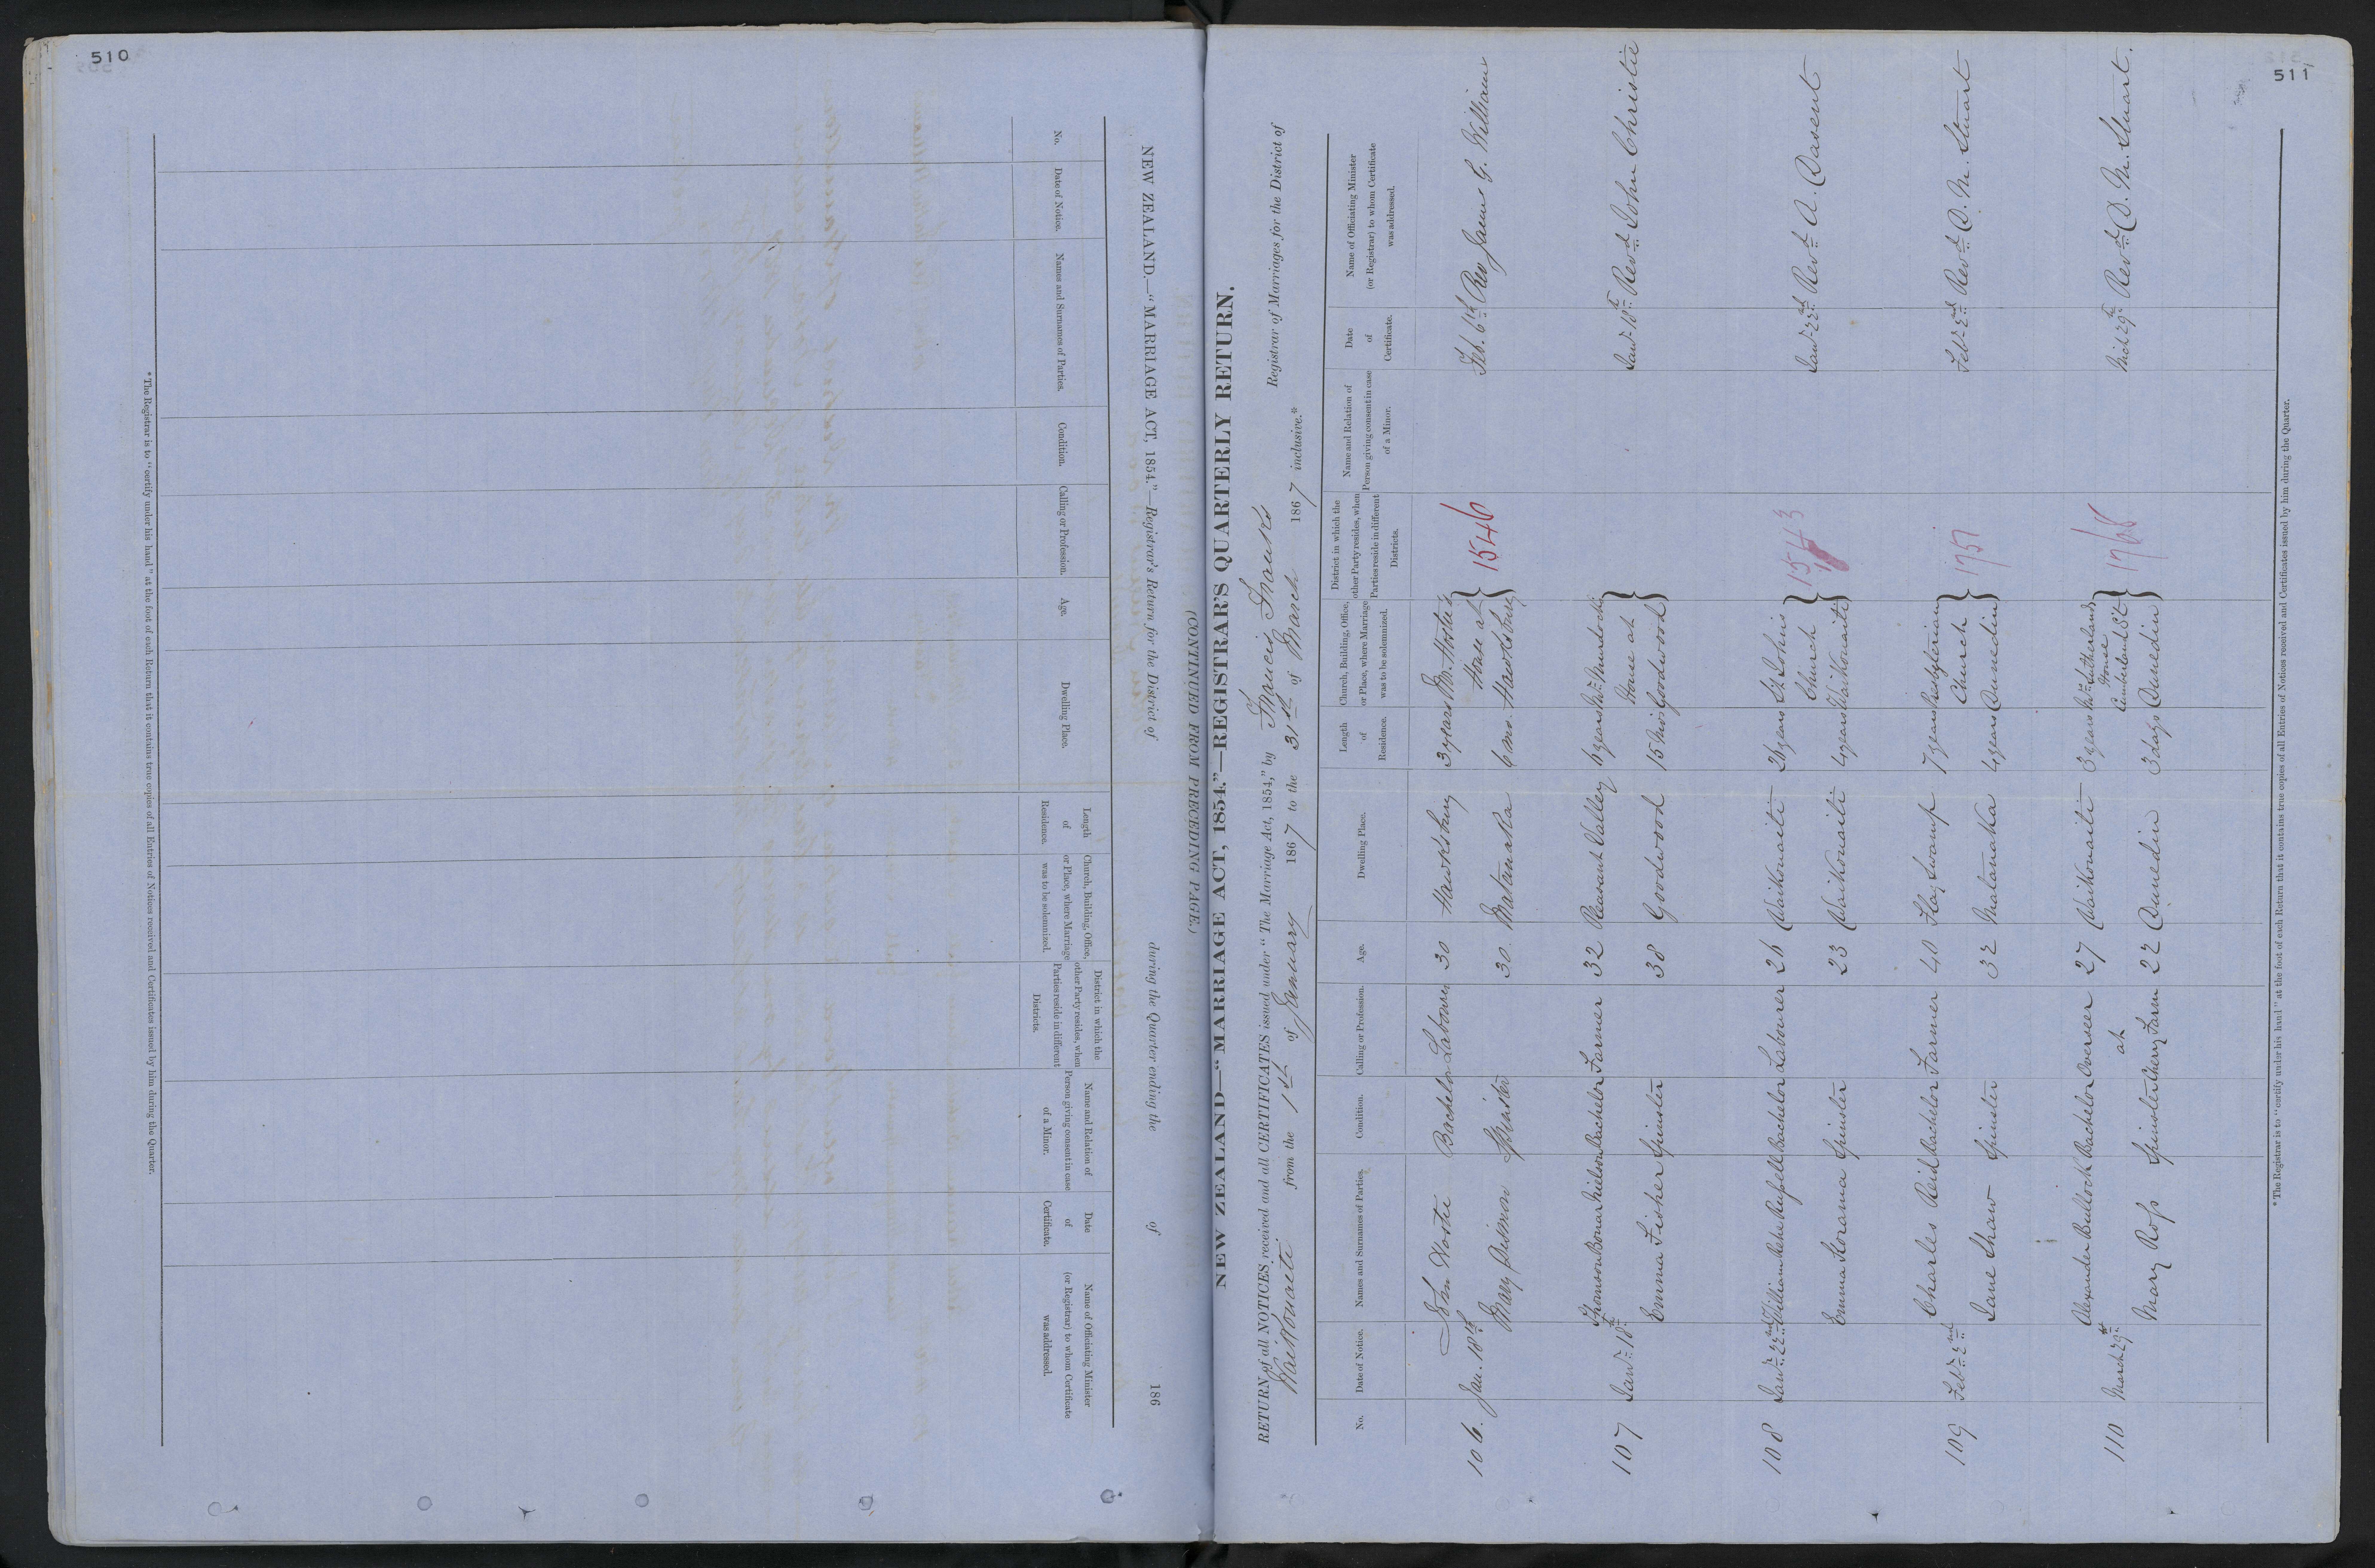 510
NEW ZEALAND.—"MARRIAGE ACT, 1854."—Registrar's Return for the District of during the Quarter ending the of 186
(CONTINUED FROM PRECEDING PAGE.)
No.
Date of Notice.
Names and Surnames of Parties.
Condition.
Calling or Profession.
Age.
Dwelling Place.
Length
of
Residence.
Church, Building, Office,
or Place, where Marriage
was to be solemnized.
District in which the
other Party resides, when
Parties reside in different
Districts.
Name and Relation of
Person giving consent in case
of a Minor.
Date
of
Certificate.
Name of Officiating Minister
(or Registrar) to whom Certificate
was addressed.
* The Registrar is to "certify under his hand" at the foot of each Return that it contains true copies of all Entries of Notices received and Certificates issued by him during the Quarter.
511
NEW ZEALAND—"MARRIAGE ACT, 1854."—REGISTRAR'S QUARTERLY RETURN.
RETURN of all NOTICES received and all CERTIFICATES issued under "The Marriage Act, 1854," by Francis Registrar of Marriages for the District of
Waikouaiti from the 1st of January 1867 to the 31st of March 1867 inclusive.*
No.
Date of Notice.
Names and Surnames of Parties.
Condition.
Calling or Profession.
Age.
Dwelling Place.
Length
of
Residence.
Church, Building, Office,
or Place, where Marriage
was to be solemnized.
District in which the
other Party resides, when
Parties reside in different
Districts.
Name and Relation of
Person giving consent in case
of a Minor.
Date
of
Certificate.
Name of Officiating Minister
(or Registrar) to whom Certificate
was addressed.
106. Jan. 18th John Bachelor Labourer 30 Hawksbury 3 years House at 1546 Feb. 6th Rev James G. William
Mary Spinster 30. Matanaka 6 mos. Hawksbury
107 Jany. 18th Thomson Bonar Neilson Bachelor Farmer 32 Pleasant Valley 6 years Wm Murdochs House at Jany. 18th Revd. John Christie
Emma Fisher Spinster 38 Goodwood Goodwood
108 Jany. 22nd William Russell Bachelor Labourer 26 Waikouaiti St John's Church 1543 Jany. 22nd Revd. A. Dasent
Emma Spinster 23 Waikouaiti 4 years Waikouaiti
109 Feby. 2nd Charles Reid Bachelor Farmer 40 Flag Swamp 7 years Presbyterian Church 1757 Feby. 2nd Revd. D. M. Stuart
Jane Shaw Spinster 32 Matanaka 4 years Dunedin
110 March 29th Alexander Bullock Bachelor Overseer at 27 Waikouaiti 3 years Wm. Sutherlands House Cumberland St 1768 Mch 29th Revd. D. M. Stuart.
Mary Ross Spinster Cherry Farm 22 Dunedin 3 days Dunedin
* The Registrar is to "certify under his hand" at the foot of each Return that it contains true copies of all Entries of Notices received and Certificates issued by him during the Quarter.